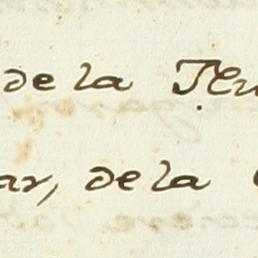 de la
ar, de la